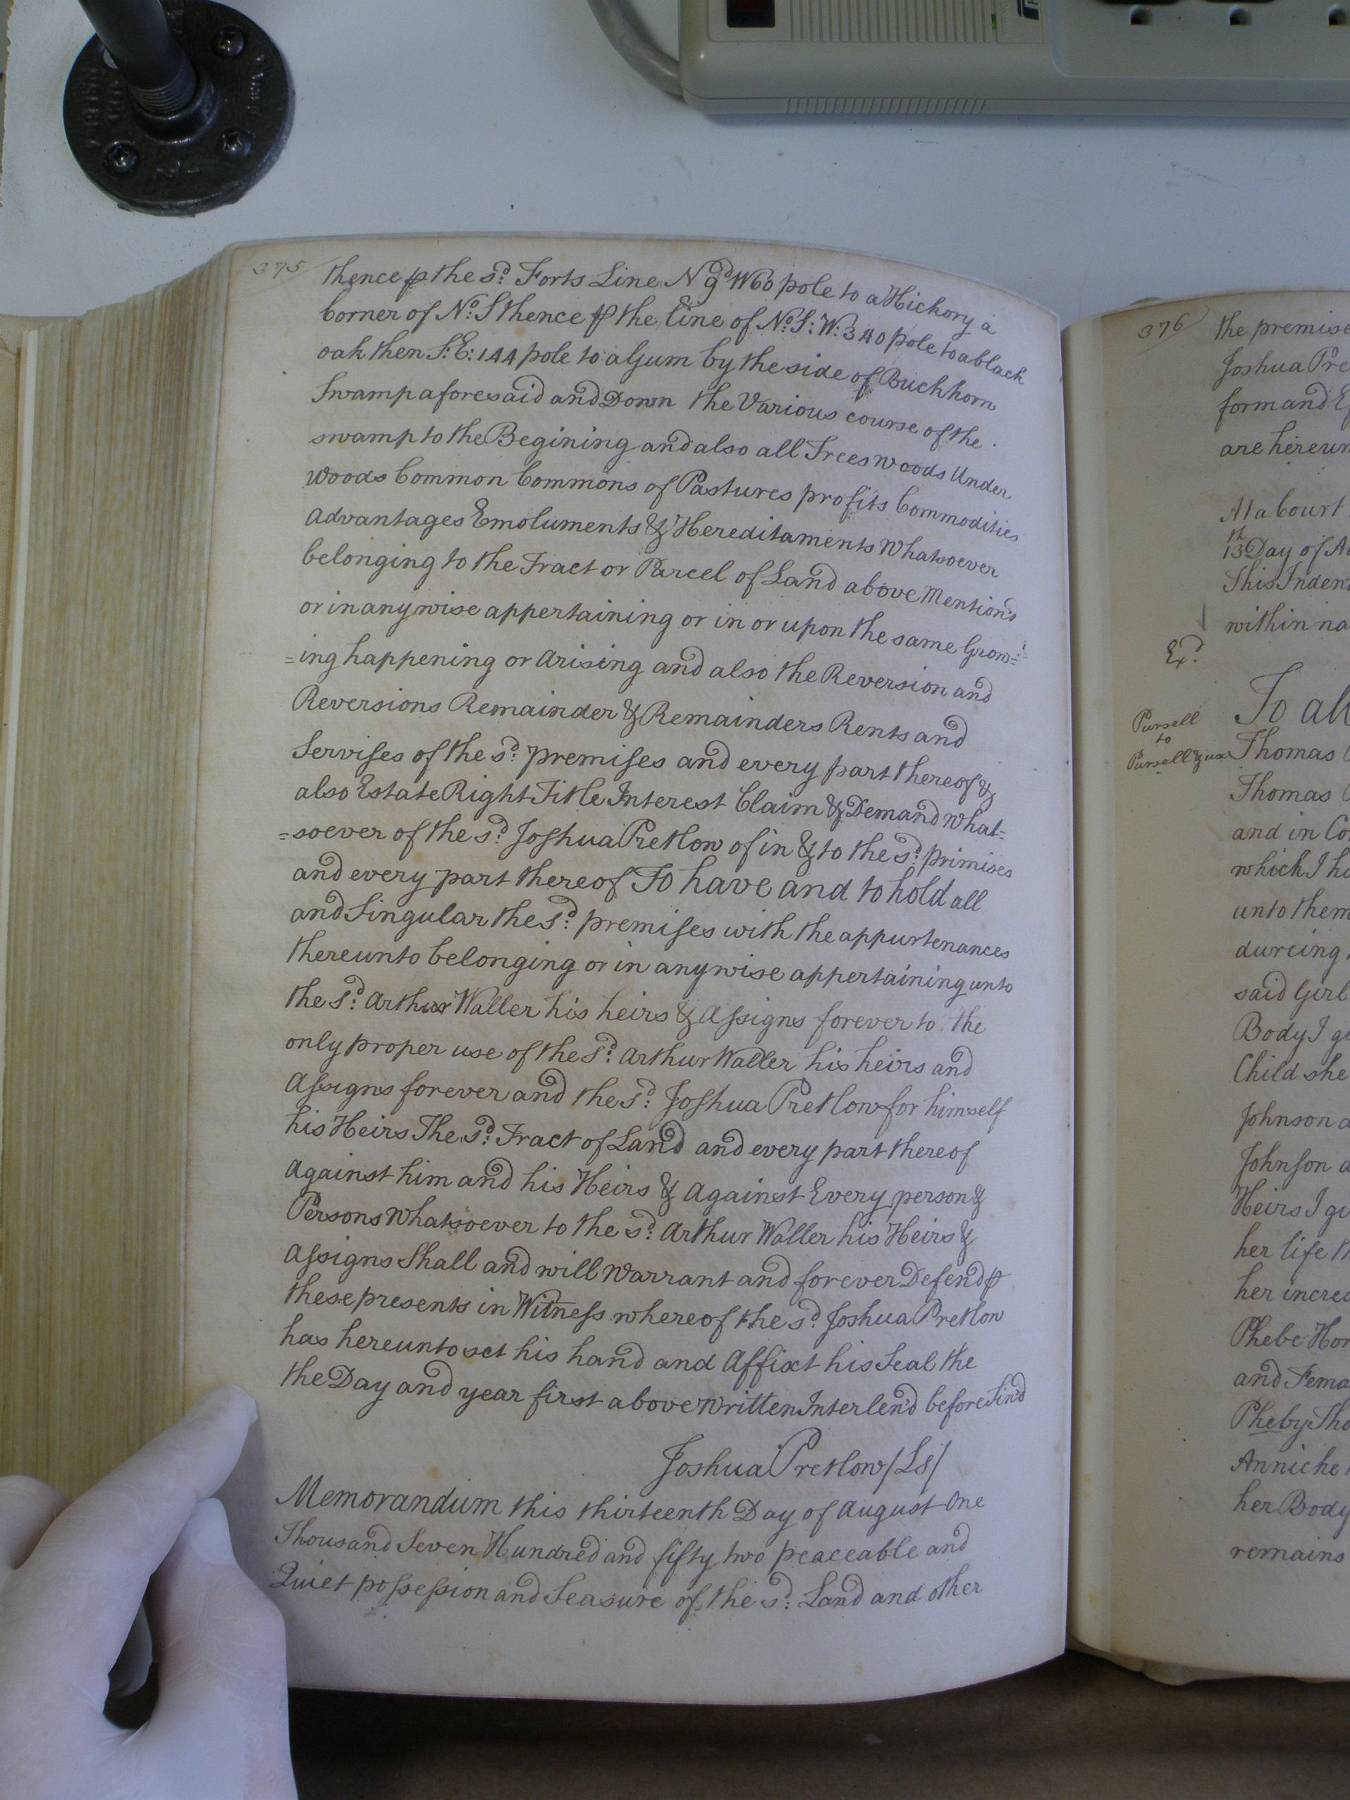 375
thence ⅌ the sd. Forts Line N 9d W 60 pole to a Hickory a
Corner of No. S thence ⅌ the Line of No. S: W: 340 pole to a black
oak then S: E: 144 pole to a Gum by the side of Buckhorn
Swamp aforesaid and Down the Various course of the
swamp to the Begining and also all Trees woods Under
woods Common Commons of Pastures profits Commodities
Advantages Emoluments & Hereditaments Whatsoever
belonging to the Tract or Parcel of Land above Mention'd
or in anywise appertaining or in or upon the same Grow=
=ing happening or Arising and also the Reversion and
Reversions Remainder & Remainders Rents and
Servises of the sd. premises and every part thereof &
also Estate Right Title Interest Claim & Demand what=
=soever of the sd. Joshua Pretlow of in & to the sd. primises
and every part thereof To have and to hold all
and Singular the sd. premises with the appurtenances
thereunto belonging or in anywise appertaining unto
the sd. Arthur Waller his heirs & Assigns forever to the
only proper use of the sd. Arthur Waller his heirs and
Assigns forever and the sd. Joshua Pretlow for himself
his Heirs The sd. Tract of Land and every part thereof
Against him and his Heirs & Against Every person &
Persons Whatsoever to the sd. Arthur Waller his Heirs &
Assigns Shall and will Warrant and forever Defend ⅌
these presents in Witness whereof the sd. Joshua Pretlow
has hereunto set his hand and Affixt his Seal the
the Day and year first above Written Interlen'd before Sin'd
Joshua Pretlow /Ls/
Memorandum this thirteenth Day of August One
Thousand Seven Hundred and fifty two peaceable and
Quiet possession and Seasure of the sd. Land and other
376
the premise
Joshua Pre
form and Ef
are hereun
At a Court
13th Day of Au
This Inden
within na
Exd.
Pursell
to
Pursell & ux
To all
Thomas
Thomas
and in Co
which I ha
unto them
dureing
said Girl
Body I gi
Child she
Johnson a
Johnson a
Heirs I gi
her life th
her increa
Phebe Hor
and Fema
Pheby Tho
Anniche
her Body
remains